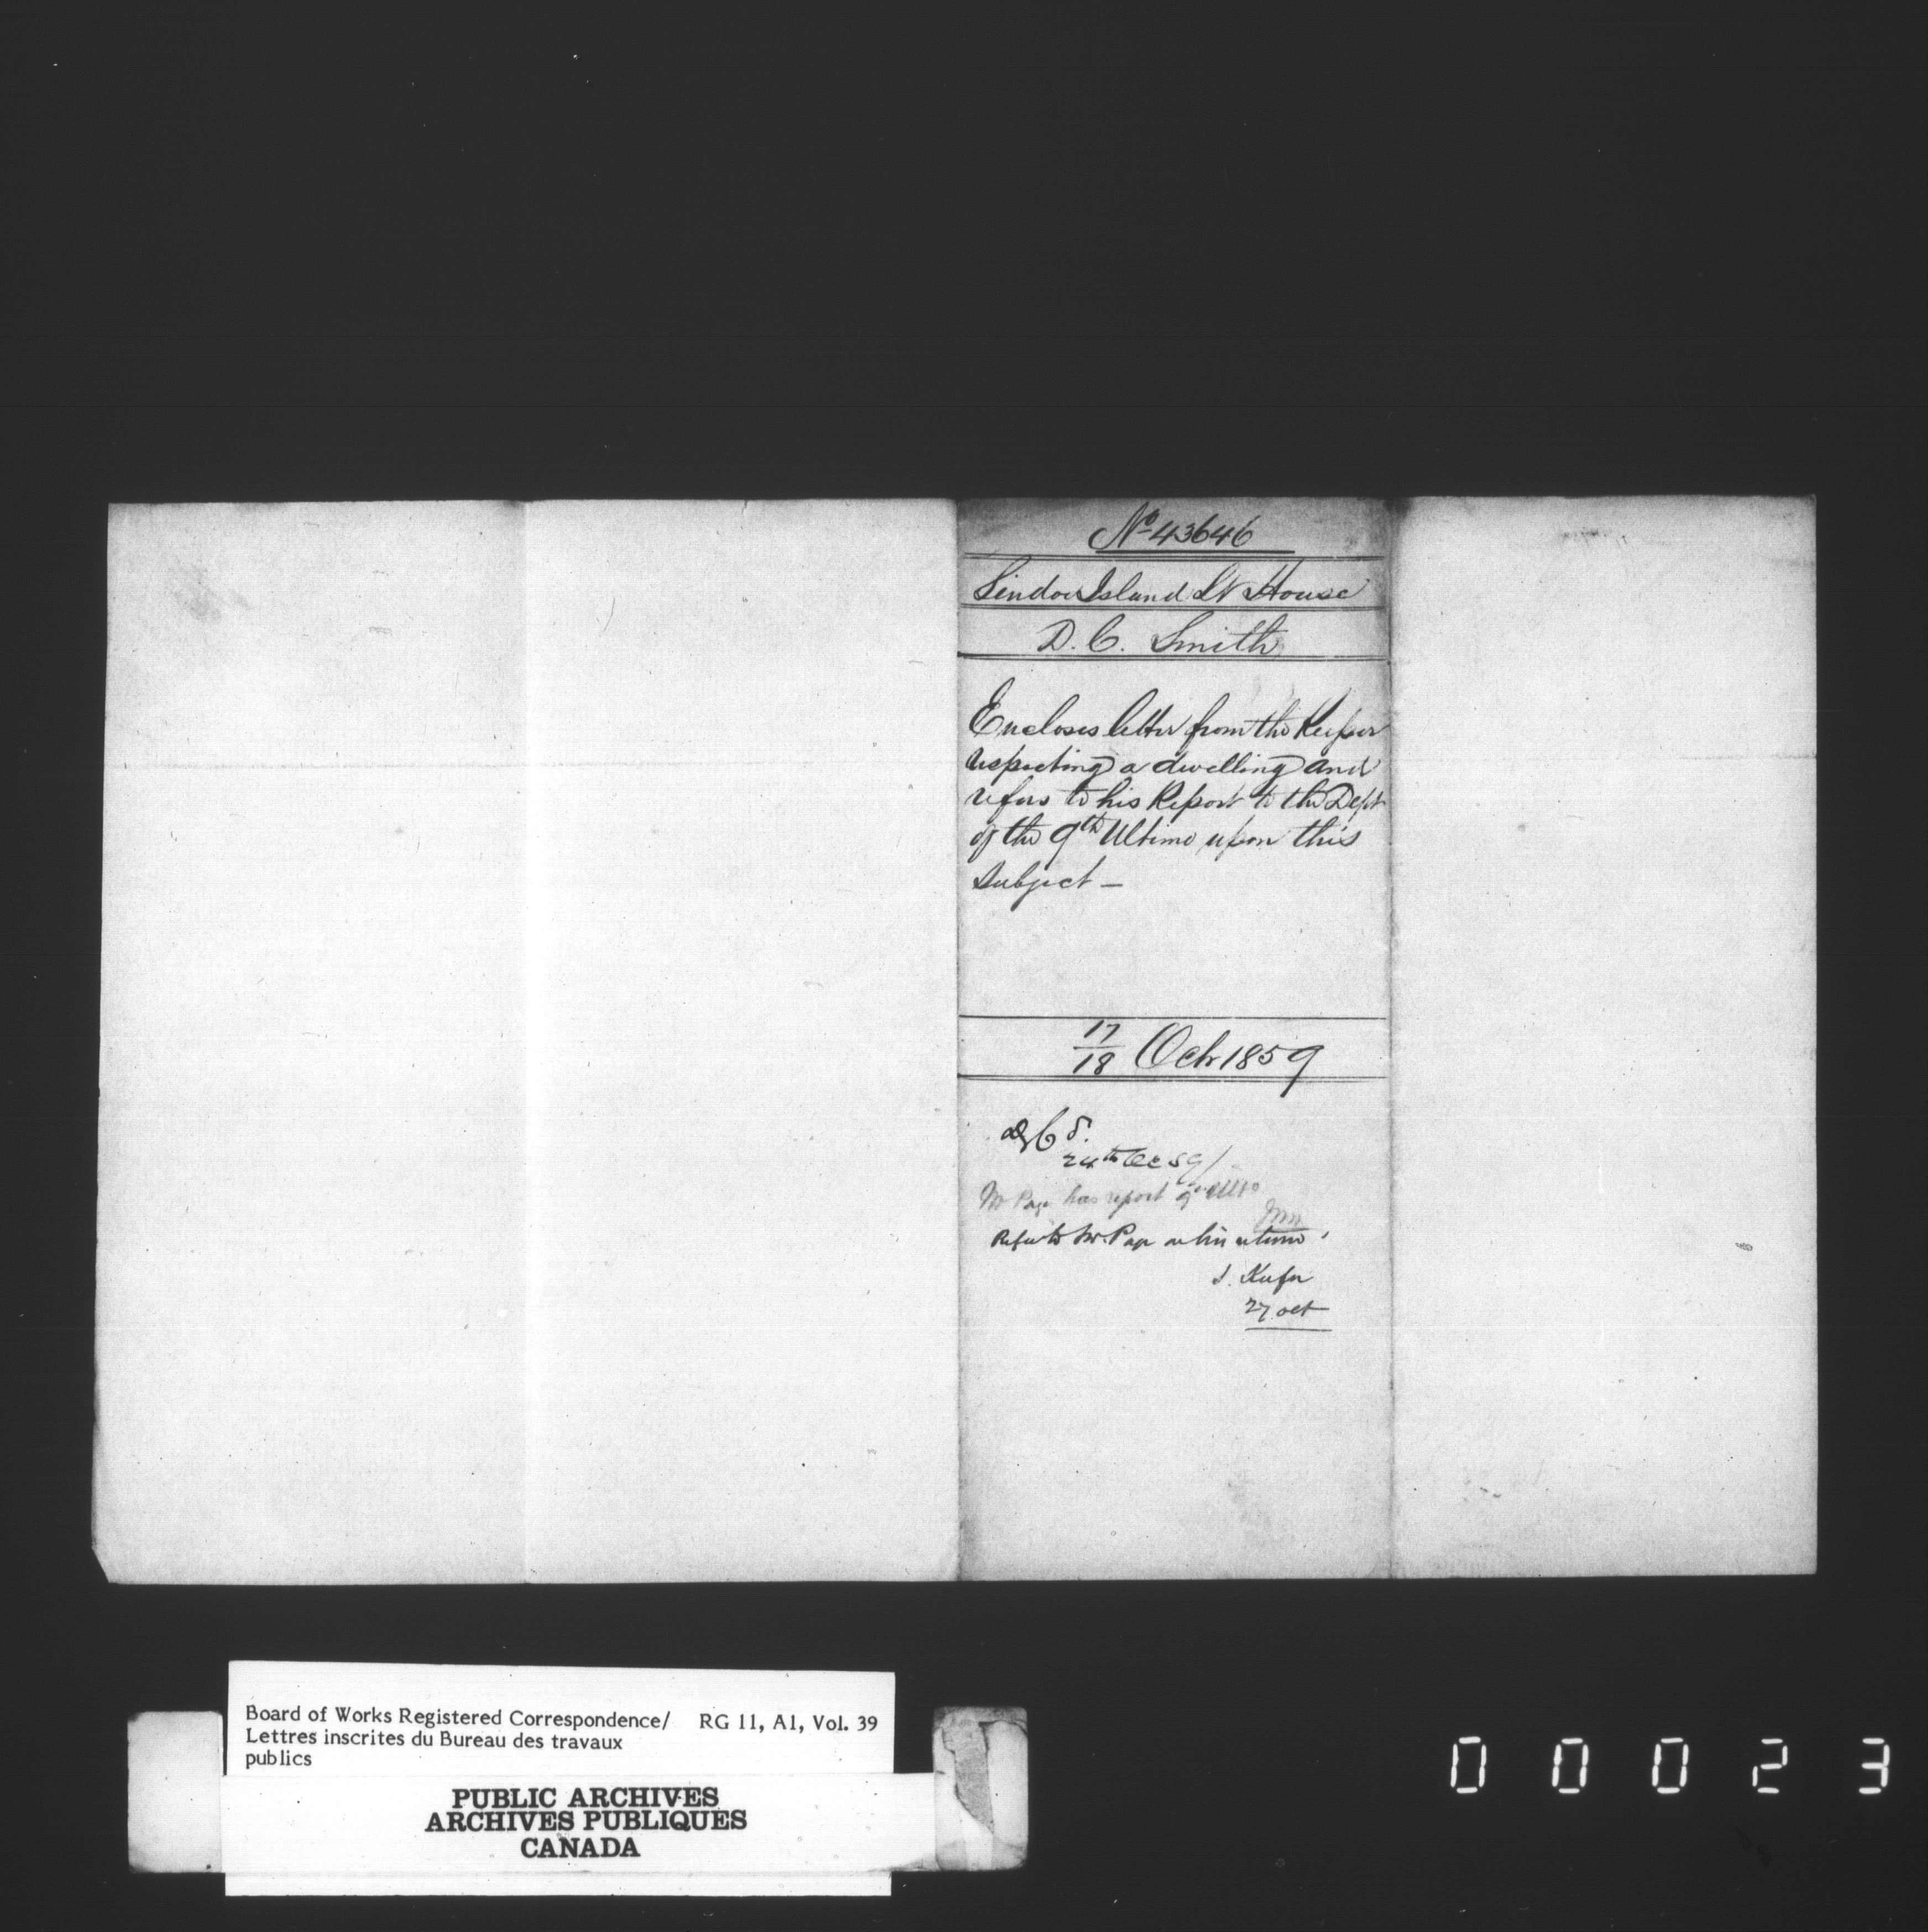 No 43646
Lindoe Island Lt House
D. C. Smith
Encloses letter from the Keeper
respecting a dwelling and
refers to his Report to the Dept
of the 9th Ultimo upon this
Subject —
17/18 Oct 1859
24th Oc 59/
Mr Page has report 9th Ulto
Refer to Mr. Page on his return
S. Keefer
27 oct
Board of Works Registered Correspondence/ RG 11, A1, Vol. 39
Lettres inscrites du Bureau des travaux
publics
PUBLIC ARCHIVES
ARCHIVES PUBLIQUES
CANADA
00023